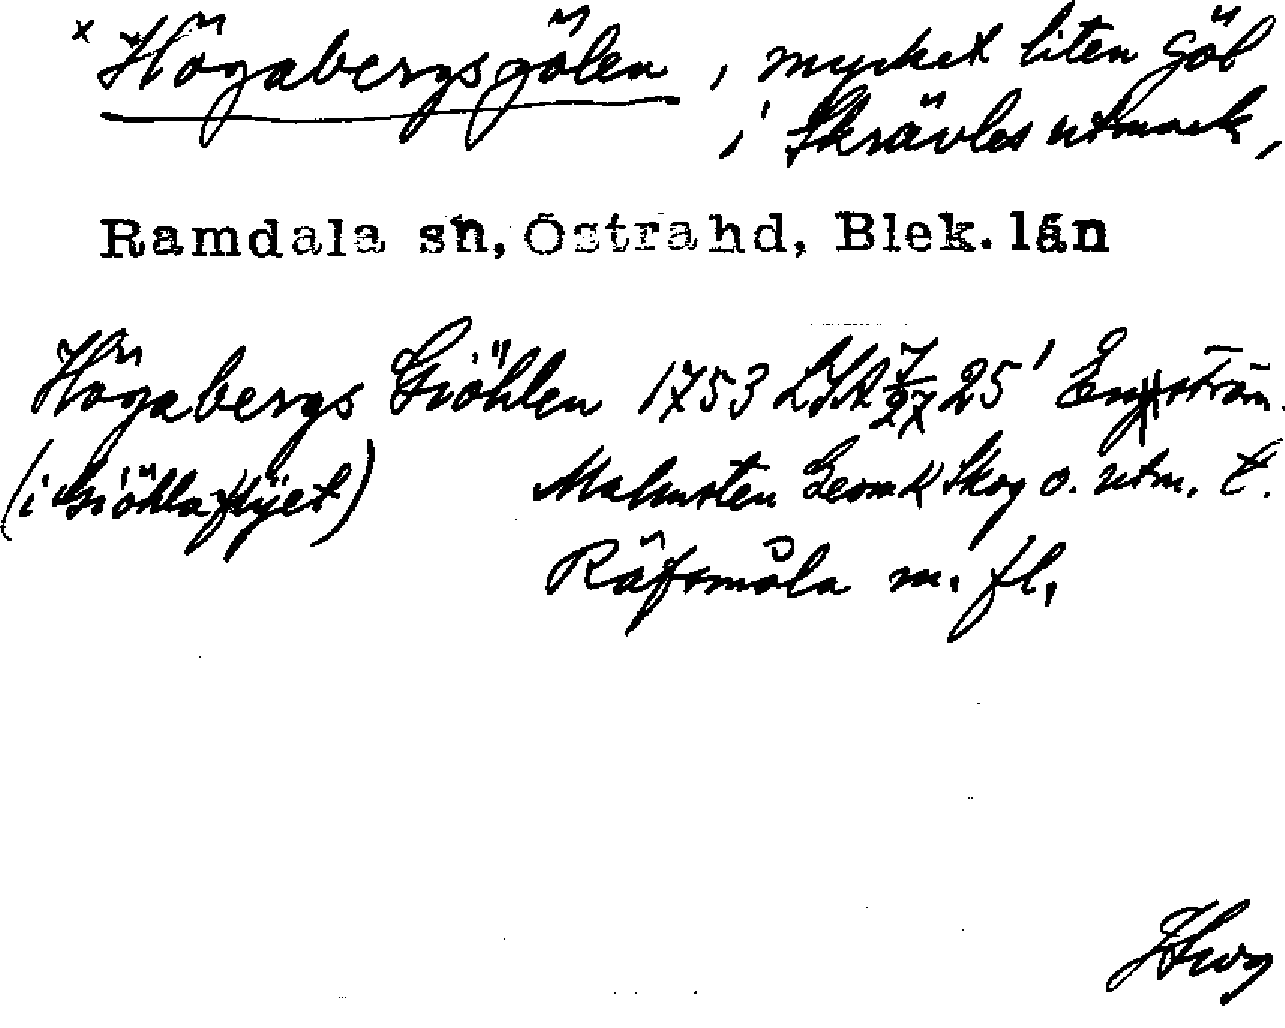 x Högabergsgölen, mycket liten göl
i Skrävles utmark,
Ramdala sn, Östra hd, Blek. län
Högabergs Giöhlen 1753 LSA 7/27 25' Engström.
(i Giöhlaflyet) Malmsten Geom k Skog o. utm. t.
Räfsmåla m. fl.